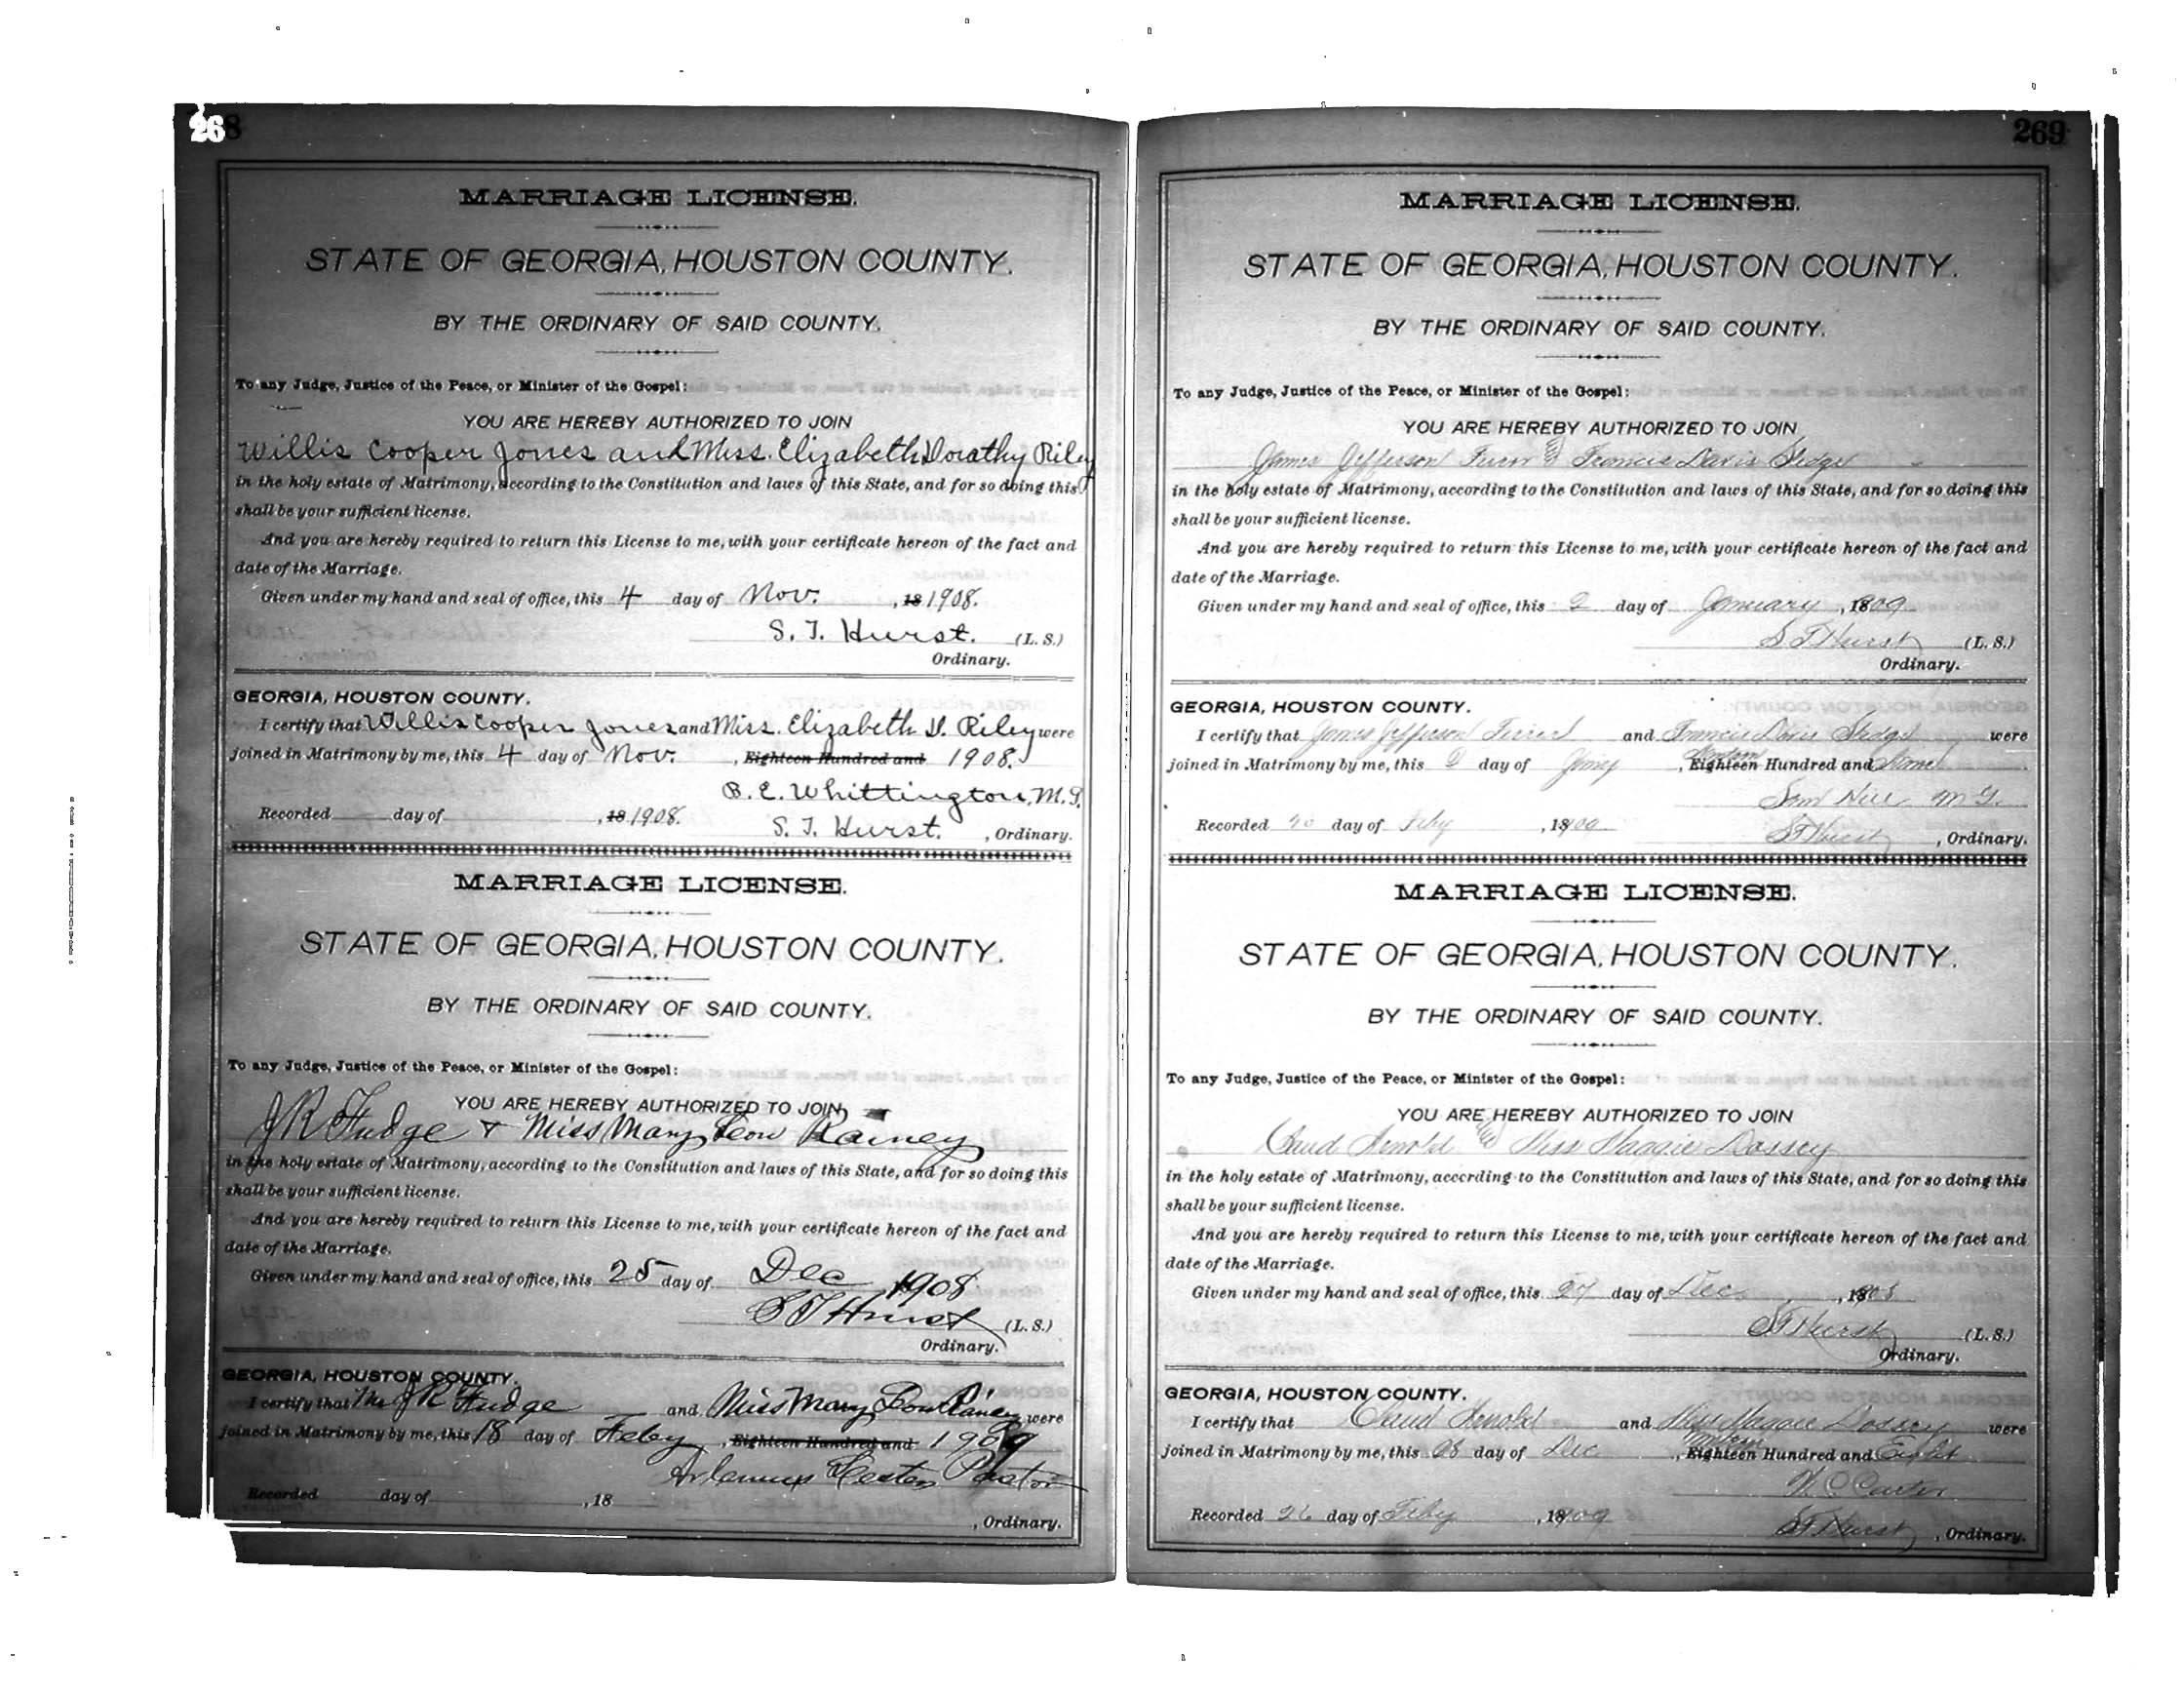 268
MARRIAGE LICENSE.
STATE OF GEORGIA, HOUSTON COUNTY.
BY THE ORDINARY OF SAID COUNTY.
To any Judge, Justice of the Peace, or Minister of the Gospel:
YOU ARE HEREBY AUTHORIZED TO JOIN
Willis Cooper Jones and Miss. Elizabeth Dorathy Riley
in the holy estate of Matrimony, according to the Constitution and laws of this State, and for so doing this
shall be your sufficient license.
And you are hereby required to return this License to me, with your certificate hereon of the fact and
date of the Marriage.
Given under my hand and seal of office, this 4 day of Nov. , 18 1908.
S. T. Hurst. (L. S.)
Ordinary.
GEORGIA, HOUSTON COUNTY.
I certify that Willis Cooper Jones and Miss. Elizabeth D. Riley were
joined in Matrimony by me, this 4 day of Nov. , Eighteen Hundred and 1908.
B. E. Whittington, M. G.
Recorded day of , 18 1908. S. T. Hurst. , Ordinary.
MARRIAGE LICENSE.
STATE OF GEORGIA, HOUSTON COUNTY.
BY THE ORDINARY OF SAID COUNTY.
To any Judge, Justice of the Peace, or Minister of the Gospel:
YOU ARE HEREBY AUTHORIZED TO JOIN
J R Fudge & Miss Mary Leow Rainey
in the holy estate of Matrimony, according to the Constitution and laws of this State, and for so doing this
shall be your sufficient license.
And you are hereby required to return this License to me, with your certificate hereon of the fact and
date of the Marriage.
Given under my hand and seal of office, this 25 day of Dec 1908
S T Hurst (L. S.)
Ordinary.
GEORGIA, HOUSTON COUNTY.
I certify that J R Fudge and Miss Mary Rainey were
joined in Matrimony by me, this 18 day of Feby , Eighteen Hundred and 1909
Pastor
Recorded day of , 18
, Ordinary.
269
MARRIAGE LICENSE.
STATE OF GEORGIA, HOUSTON COUNTY.
BY THE ORDINARY OF SAID COUNTY.
To any Judge, Justice of the Peace, or Minister of the Gospel:
YOU ARE HEREBY AUTHORIZED TO JOIN
James Jefferson & Francis Davis Sledge
in the holy estate of Matrimony, according to the Constitution and laws of this State, and for so doing this
shall be your sufficient license.
And you are hereby required to return this License to me, with your certificate hereon of the fact and
date of the Marriage.
Given under my hand and seal of office, this 2 day of January , 1909
S T Hurst (L. S.)
Ordinary.
GEORGIA, HOUSTON COUNTY.
I certify that James Jefferson and Francis Davis Sledge were
joined in Matrimony by me, this day of , Eighteen Hundred and
M G.
Recorded day of Feby , 1909
S T Hurst , Ordinary.
MARRIAGE LICENSE.
STATE OF GEORGIA, HOUSTON COUNTY.
BY THE ORDINARY OF SAID COUNTY.
To any Judge, Justice of the Peace, or Minister of the Gospel:
YOU ARE HEREBY AUTHORIZED TO JOIN
Claud Arnold & Miss Maggie Dossey
in the holy estate of Matrimony, according to the Constitution and laws of this State, and for so doing this
shall be your sufficient license.
And you are hereby required to return this License to me, with your certificate hereon of the fact and
date of the Marriage.
Given under my hand and seal of office, this 27 day of Dec , 1908
S T Hurst (L. S.)
Ordinary.
GEORGIA, HOUSTON COUNTY.
I certify that Claud Arnold and Miss Maggie Dossey were
joined in Matrimony by me, this 28 day of Dec , Eighteen Hundred and Eight
Carter
Recorded 26 day of Feby , 1909
S T Hurst , Ordinary.